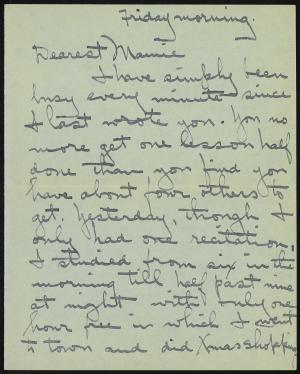 Friday morning.
Dearest Mamie
I have simply been
busy every minute since
I last wrote you. You no
more get one lesson half
done than you find you
have about four others to
get. Yesterday though I
only had one recitation,
I studied from six in the
morning till half past nine
at night with only one
hour free in which I went
to town and did Xmas shopping